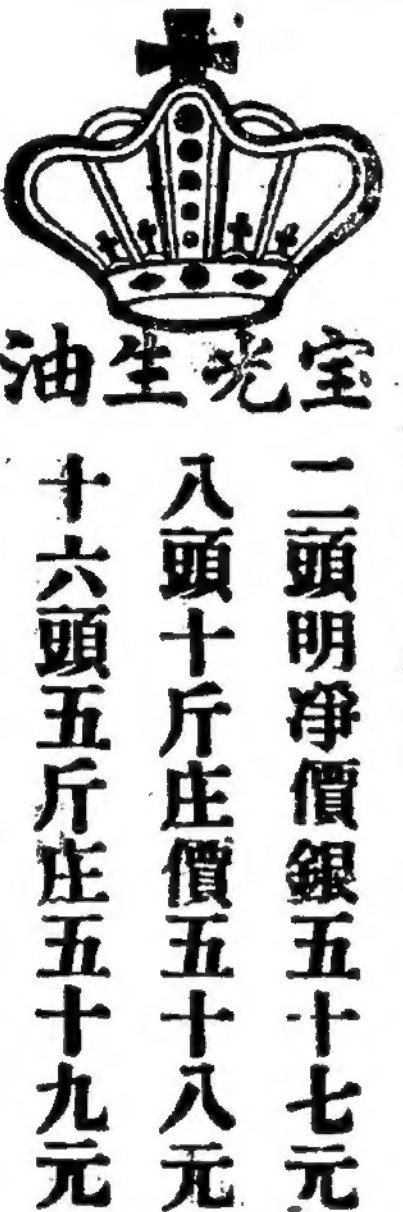 宝光生油
二頭明淨價銀五十七元
八頭十斤庄價五十八元
十六頭五斤庄五十九元